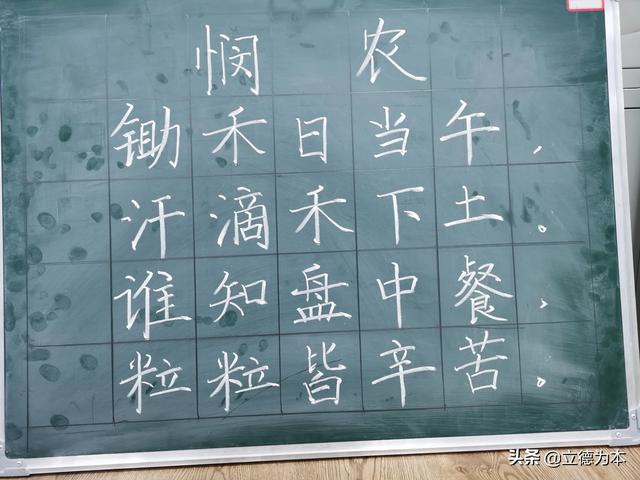 悯农
锄禾日当午，
汗滴禾下土。
谁知盘中餐，
粒粒皆辛苦。
头条 @立德为本